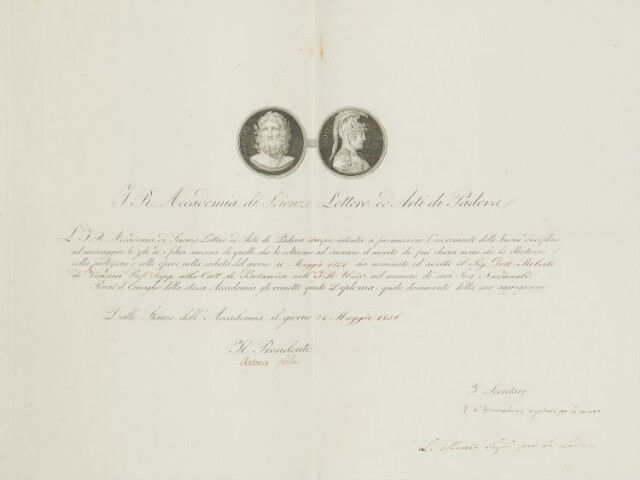 I. R. Accademia di Scienze Lettere ed Arti di Padova
L'I. R. Accademia di Scienze Lettere ed Arti di Padova sempre intenta a promuovere l'incremento delle buone discipline
ed incoraggiare lo zelo ed i felici successi di quelli che le coltivano ed onorare il merito de' più chiari nomi che le illustrano
colla protezione e colle opere, nella seduta del giorno 10 Maggio ha nominato ed ascritto il Sig. Dott. Roberto
de Visiani Prof. Supp. alla Catt. di Botanica nell' I. R. Univ. nel numero de' suoi Socj Nazionali
Perciò il Consiglio della stessa Accademia gli rimette questo Diploma quale documento della sua aggregazione
Dalle Stanze dell' Accademia il giorno 24 Maggio
Il Presidente
I Secretarj
per le
L. per le Lettere